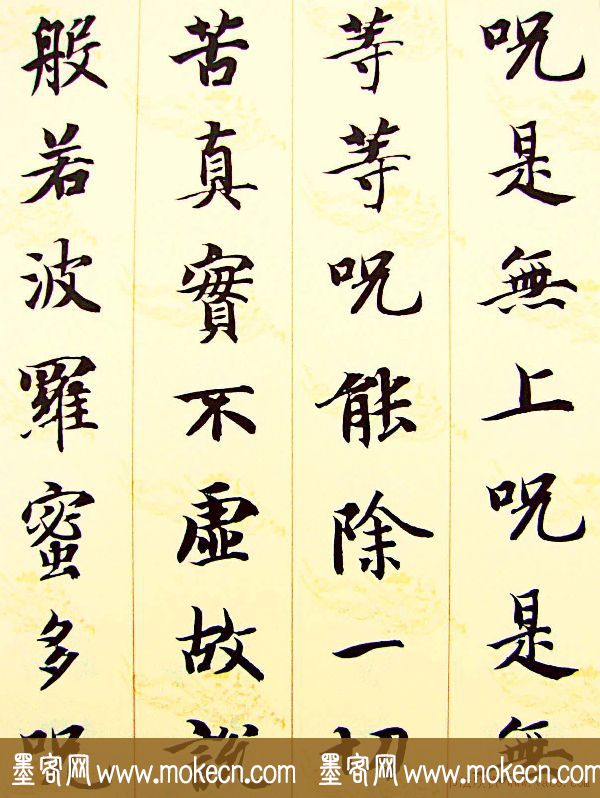 呪是無上呪是無
等等呪能除一切
苦真實不虛故說
般若波羅蜜多呪
墨客网 www.mokecn.com 墨客网 www.mokecn.com